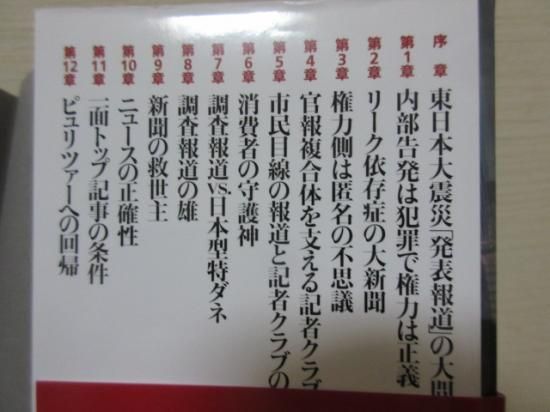 序章 東日本大震災「発表報道」の大
第1章 内部告発は犯罪で権力は正義
第2章 リーク依存症の大新聞
第3章 権力側は匿名の不思議
第4章 官報複合体を支える記者クラブ
第5章 市民目線の報道と記者クラブの
第6章 消費者の守護神
第7章 調査報道vs.日本型特ダネ
第8章 調査報道の雄
第9章 新聞の救世主
第10章 ニュースの正確性
第11章 一面トップ記事の条件
第12章 ピュリツァーへの回帰